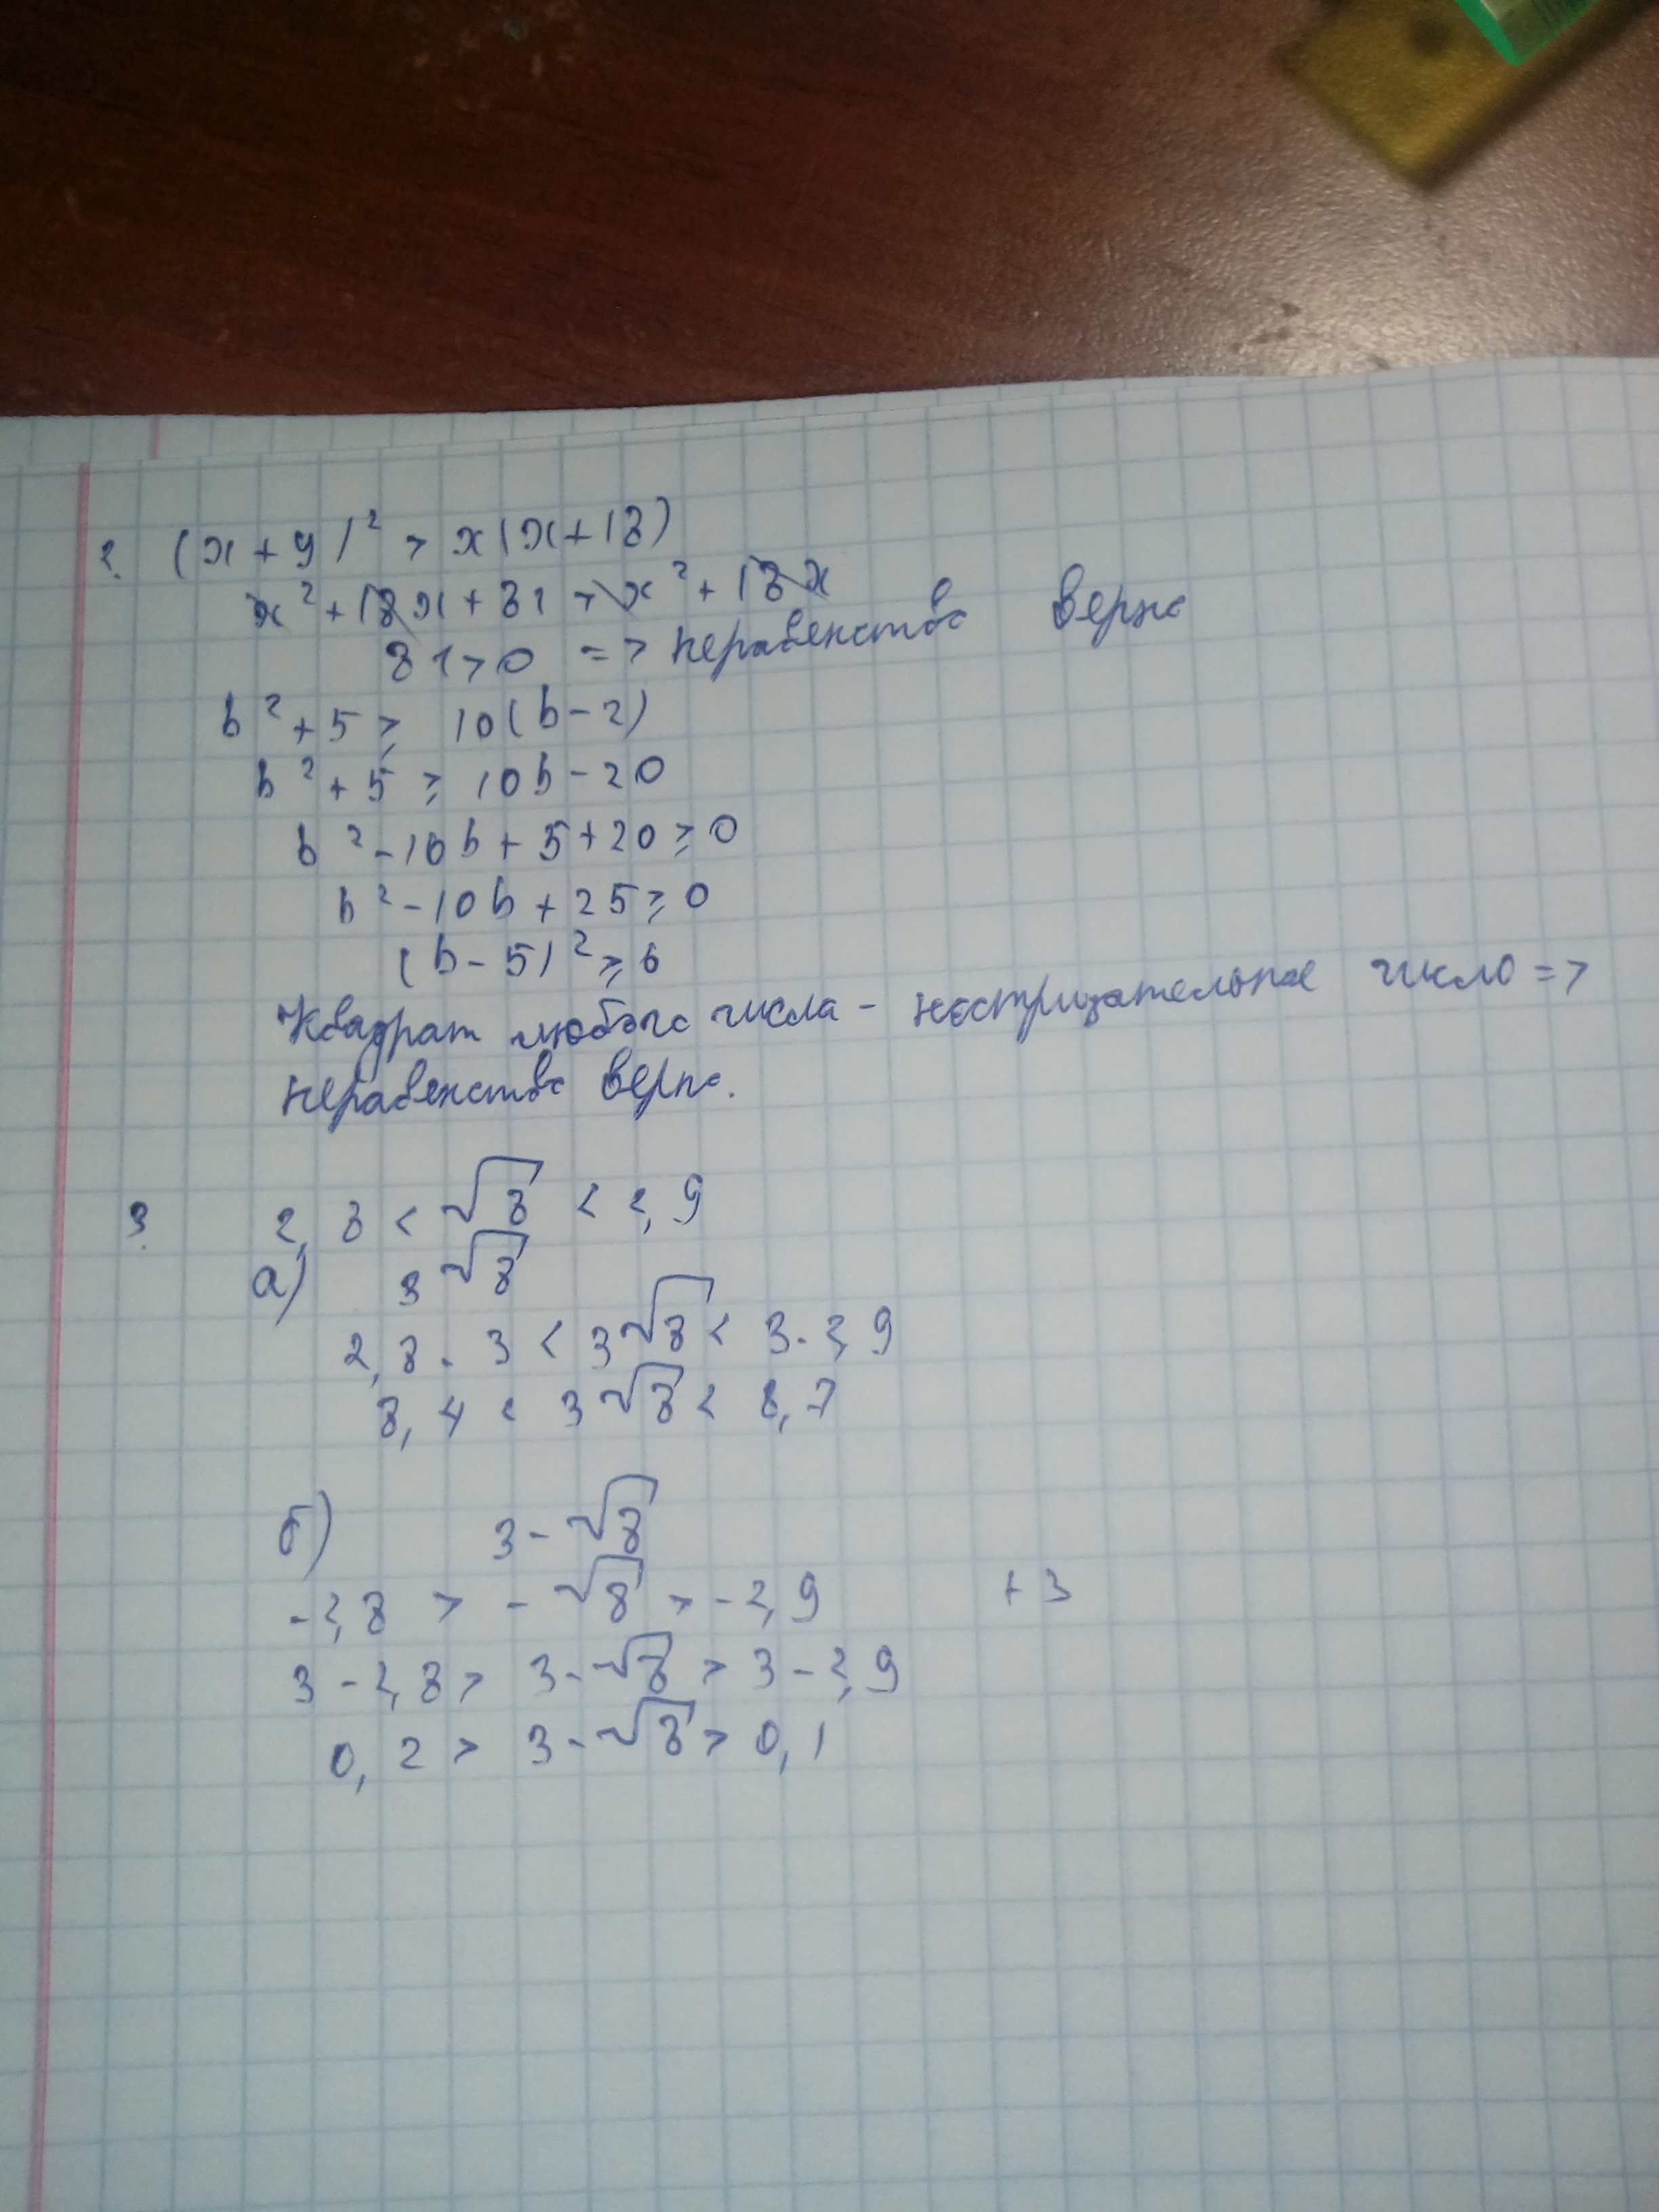 2. (x + 9)² > x(x+18)
x² + 18x + 81 > x² + 18x
81 > 0 => неравенство верно
b² + 5 ≥ 10(b - 2)
b² + 5 ≥ 10b - 20
b² - 10b + 5 + 20 ≥ 0
b² - 10b + 25 ≥ 0
(b - 5)² ≥ 0
Квадрат любого числа - неотрицательное число =>
неравенство верно.
3. 2,8 < √8 < 2,9
а) 3√8
2,8 · 3 < 3√8 < 3 · 2,9
8,4 < 3√8 < 8,7
б) 3 - √8
-2,8 > -√8 > -2,9 +3
3 - 2,8 > 3 - √8 > 3 - 2,9
0,2 > 3 - √8 > 0,1